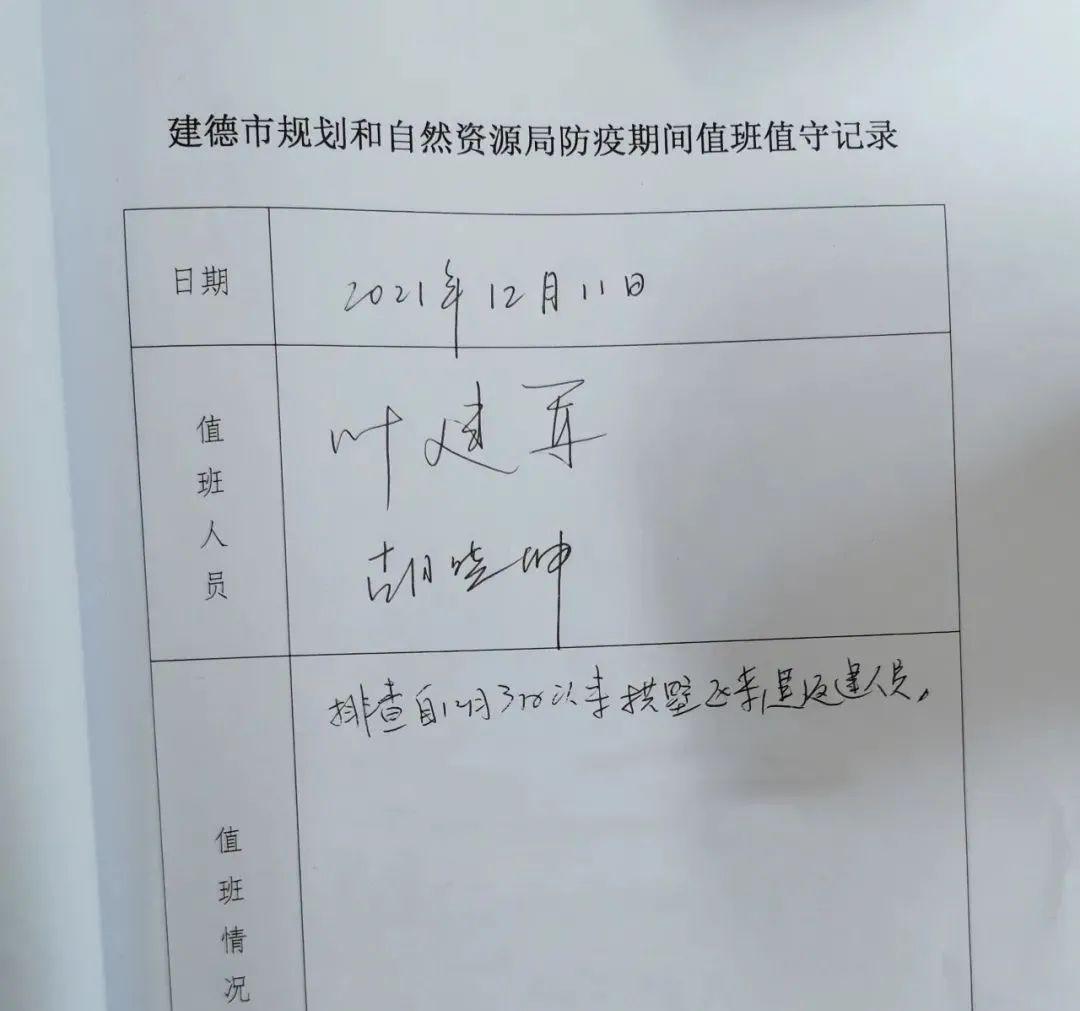 建德市规划和自然资源局防疫期间值班值守记录
日期
2021年12月11日
值班人员
叶建军
胡晓坤
排查自12月3日以来拱墅区来建返建人员,
值班情况